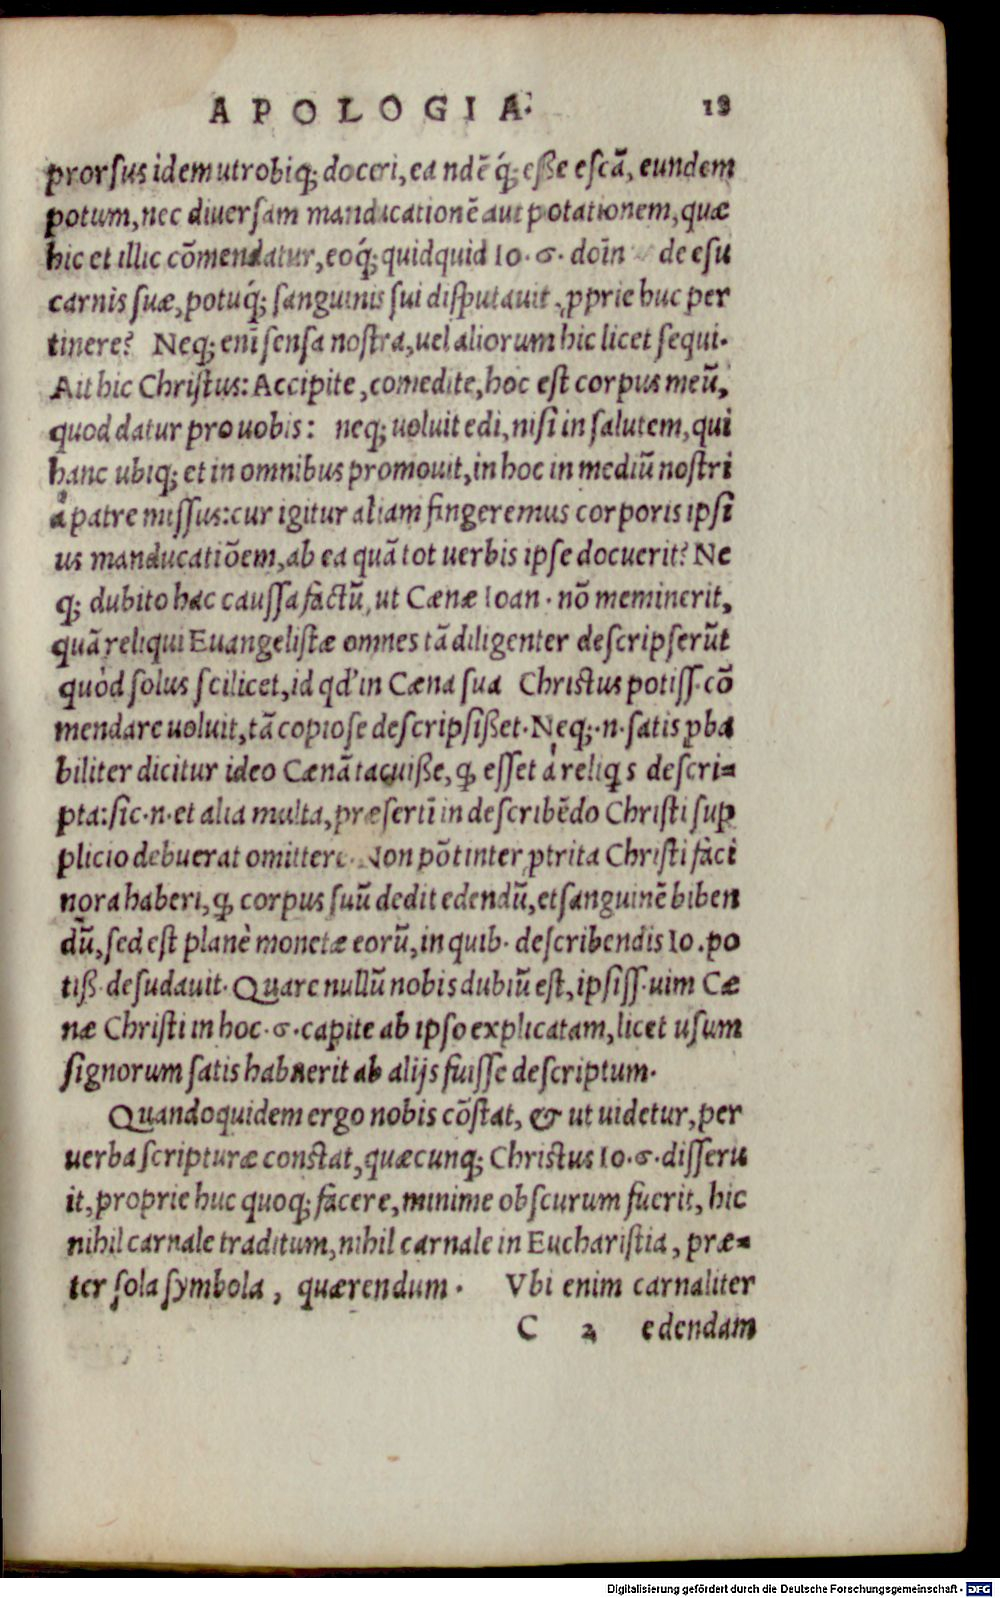 APOLOGIA. 19
prorsus idem utrobiq; doceri, ea ndē q́; eße escā, eundem
potum, nec diuersam manducationē aut potationem, quæ
hic et illic cōmendatur, eoq́; quidquid Io. 6. doīn de esu
carnis suæ, potuq́; sanguinis sui disputauit, ꝓprie huc per
tinere? Neq; enī sensa nostra, uel aliorum hic licet sequi.
Ait hic Christus: Accipite, comedite, hoc est corpus meū,
quod datur pro uobis: neq; uoluit edi, nisi in salutem, qui
hanc ubiq; et in omnibus promouit, in hoc in mediū nostri
à patre missus: cur igitur aliam fingeremus corporis ipsi
us manducatiōem, ab ea quā tot uerbis ipse docuerit? Ne
q; dubito hac caussa factū, ut Cænæ Ioan. nō meminerit,
quā reliqui Euangelistæ omnes tā diligenter descripserūt
quòd solus scilicet, id qd' in Cæna sua Christus potiss. cō
mendare uoluit, tā copiose descripsißet. Neq;. n. satis ꝓba
biliter dicitur ideo Cænā tacuiße, ꝙ esset à reliq̨s descri=
pta: sic. n. et alia multa, præsertī in describēdo Christi sup
plicio debuerat omittere. Non pōt inter ꝑtrita Christi faci
nora haberi, ꝙ corpus suū dedit edendū, et sanguinē biben
dū, sed est planè monetæ eorū, in quib. describendis Io. po
tiß. desudauit. Quare nullū nobis dubiū est, ipsiss. uim Cæ
næ Christi in hoc. 6. capite ab ipso explicatam, licet usum
signorum satis habuerit ab alijs fuisse descriptum.
Quandoquidem ergo nobis cōstat, & ut uidetur, per
uerba scripturæ constat, quæcunq; Christus Io. 6. disseru
it, proprie huc quoq; facere, minime obscurum fuerit, hic
nihil carnale traditum, nihil carnale in Eucharistia, præ=
ter sola symbola, quærendum. Vbi enim carnaliter
C 2 edendam
Digitalisierung gefördert durch die Deutsche Forschungsgemeinschaft - DFG